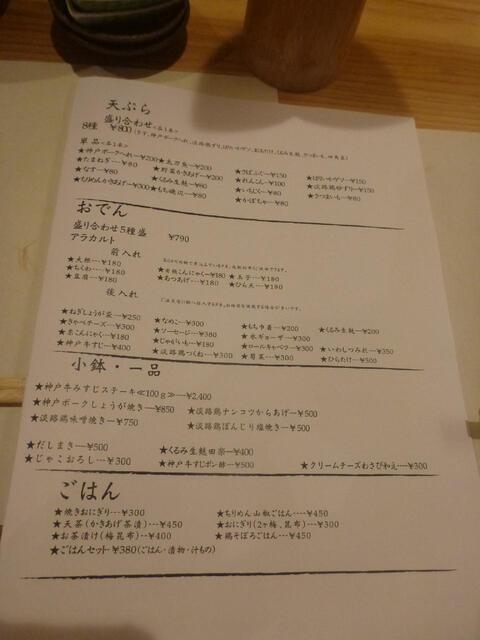 天ぷら
盛り合わせ<各1本>
8種 ¥800
単品<各1本>
★神戸ポークヘレ…¥200 ★太刀魚…¥200 ★さばふぐ…¥150
★たまねぎ…¥80 ★野菜かきあげ…¥200 ★れんこん…¥100 ★淡路鶏ずり…¥150
★なす…¥80 ★くるみ生麩…¥80 ★いちじく…¥80 ★さつまいも…¥80
★ひめめんかきあげ…¥300 ★もち磯辺…¥80 ★かぼちゃ…¥80
おでん
盛り合わせ5種盛 ¥790
アラカルト
前入れ
★大根…¥180 ★有機こんにゃく…¥180 ★玉子…¥180
★ちくわ…¥180 ★あつあげ…¥180 ★ひら天…¥180
★豆腐…¥180
後入れ
★ねぎしょうが笠…¥250 ★なめこ…¥300 ★もち巾着…¥200 ★くるみ生麩…¥200
★きゃべチーズ…¥300 ★ソーセージ…¥380 ★水ギョーザ…¥300
★糸こんにゃく…¥180 ★じゃがいも…¥180 ★ロールキャベツ…¥300 ★いわしつみれ…¥350
★神戸牛すじ…¥400 ★淡路鶏つくね…¥300 ★菊菜…¥300 ★ひらたけ…¥500
小鉢・一品
★神戸牛みすじステーキ≪100g≫…¥2,400
★神戸ポークしょうが焼き…¥850 ★淡路鶏ナンコツからあげ…¥500
★淡路鶏味噌焼き…¥750 ★淡路鶏ぼんじり塩焼き…¥500
★だしまき…¥500 ★くるみ生麩田楽…¥400
★じゃこおろし…¥300 ★神戸牛すじポン酢…¥500 ★クリームチーズわさび和え…¥300
ごはん
★焼きおにぎり…¥300 ★ちりめん山椒ごはん…¥450
★天茶(かきあげ茶漬)…¥450 ★おにぎり(2ヶ梅、昆布)…¥300
★お茶漬け(梅昆布)…¥400 ★鶏そぼろごはん…¥450
★ごはんセット¥380(ごはん・漬物・汁もの)